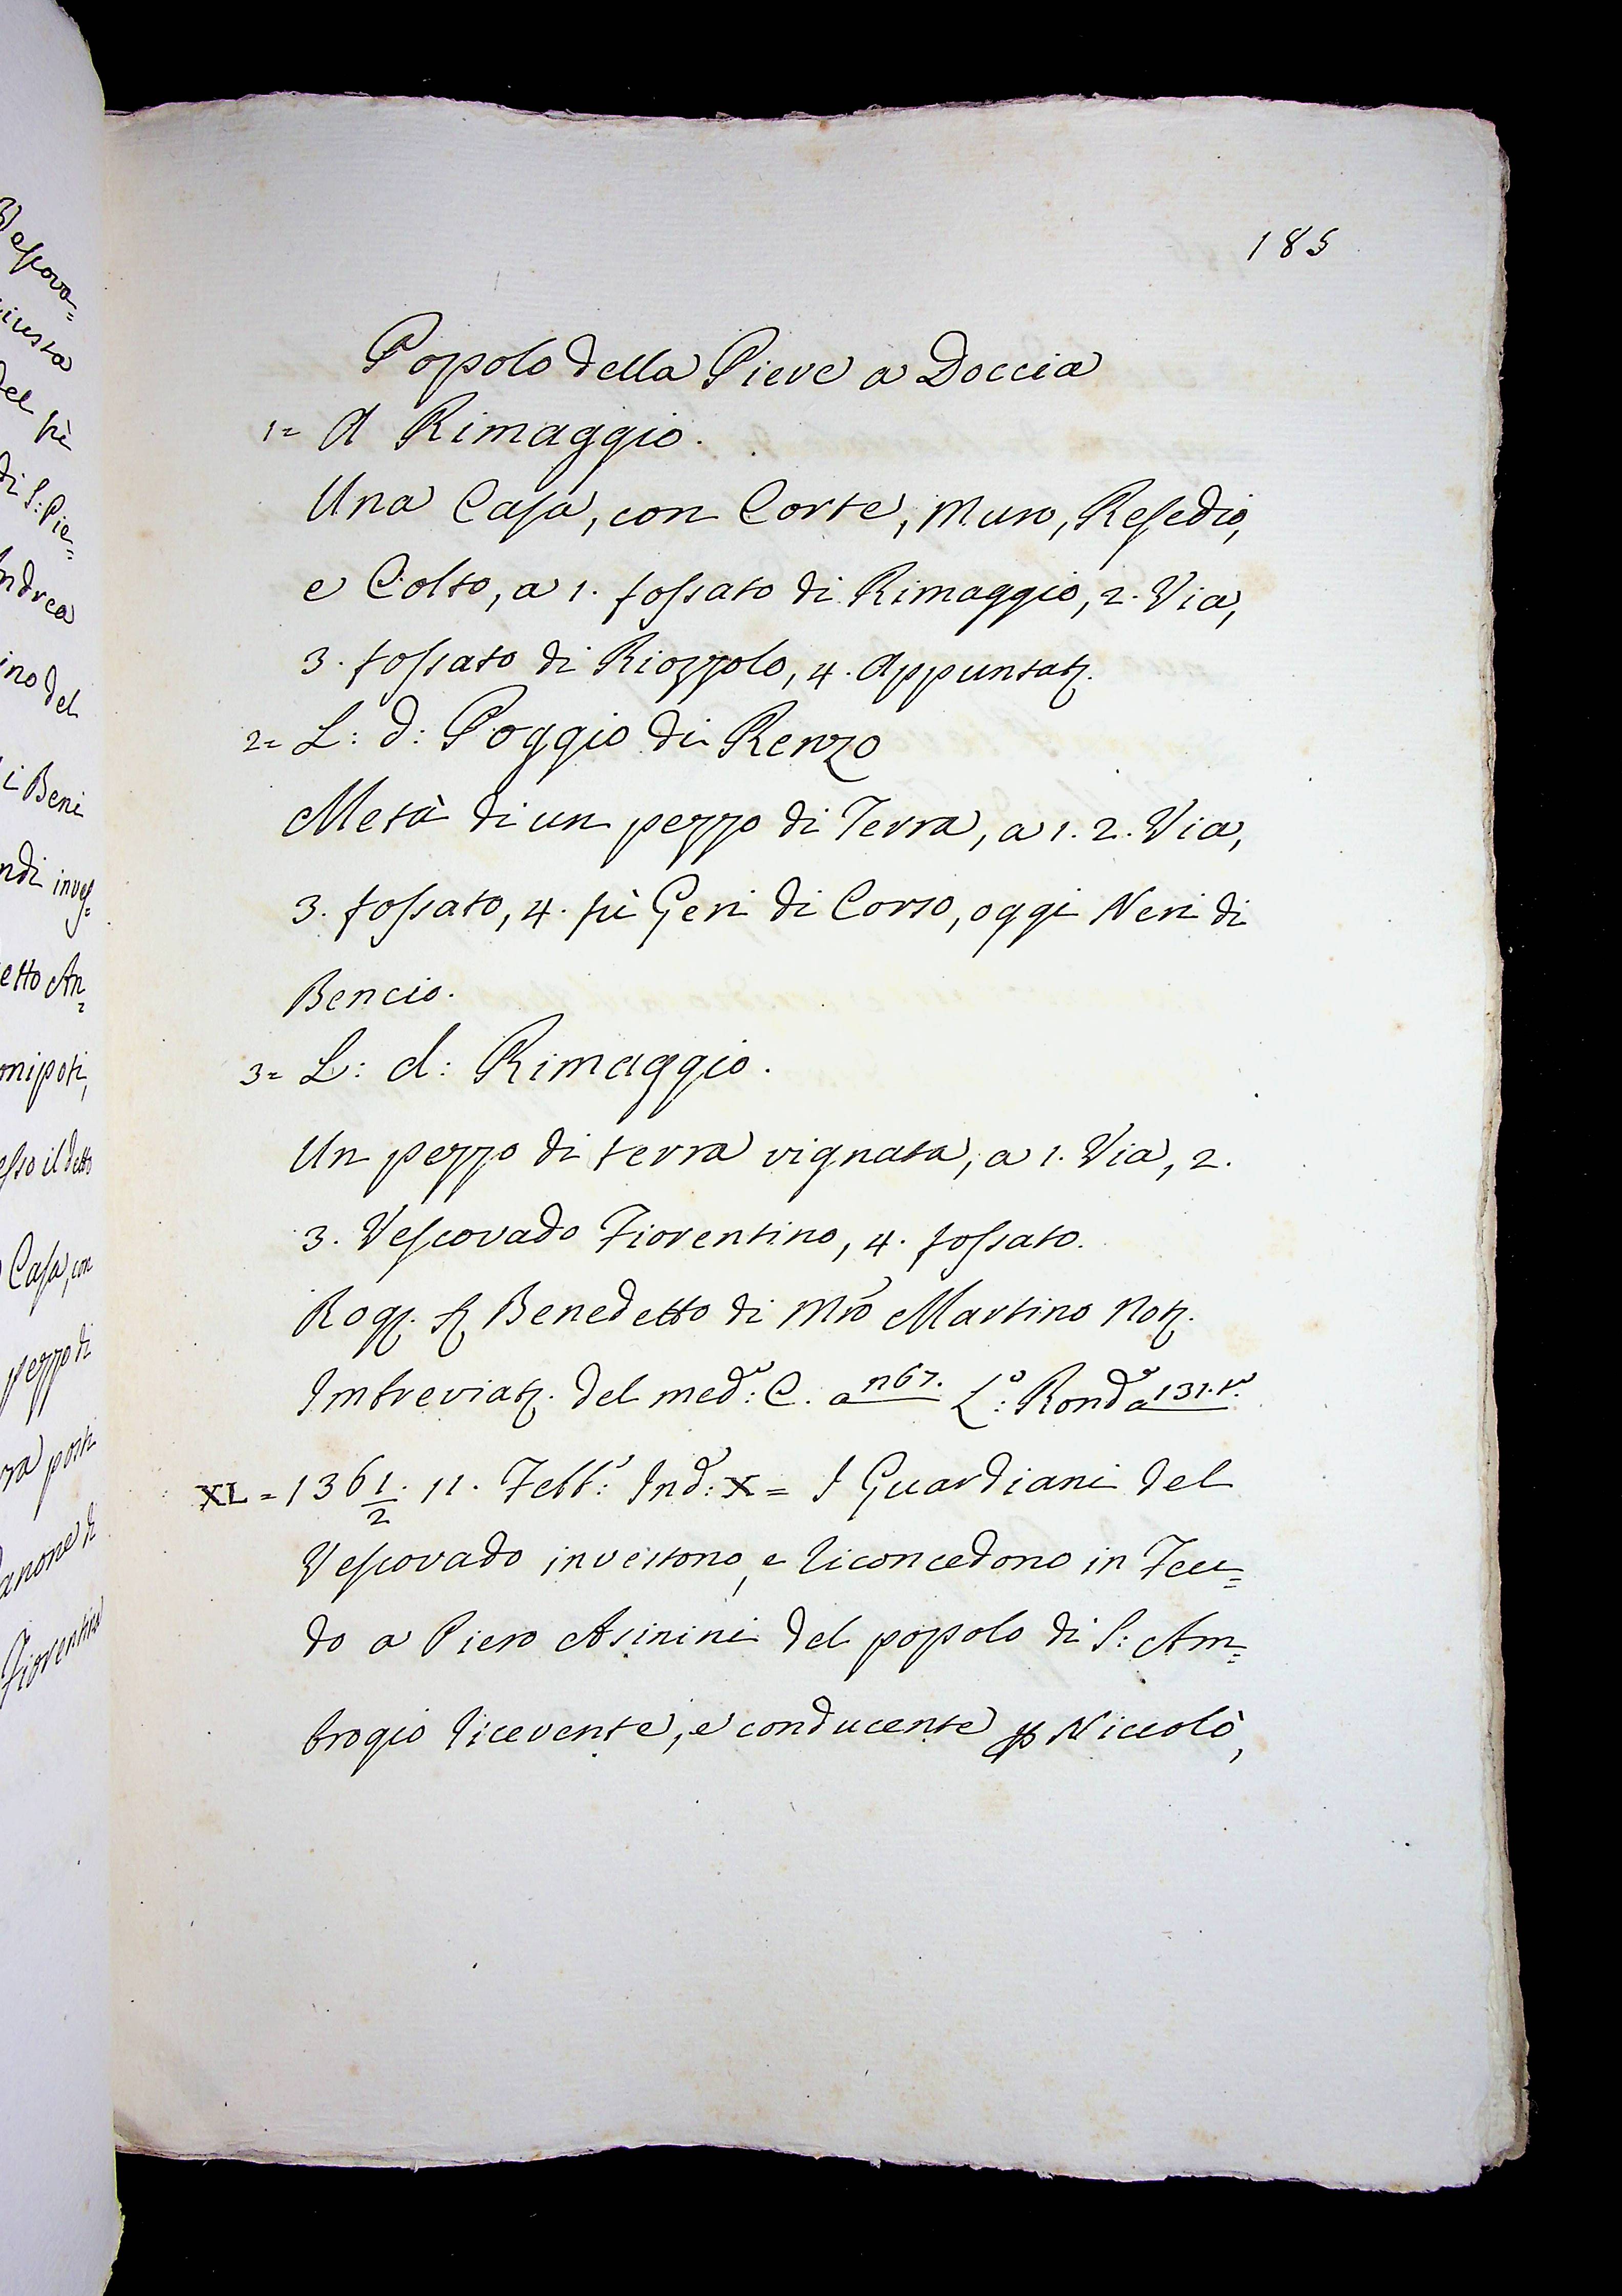 185
Popolo della Pieve a Doccia
1= A Rimaggio.
Una Casa, con Corte, Muro, Resedio,
e Colto, a 1. fossato di Rimaggio, 2. Via,
3. fossato di Riozzolo, 4. Appuntatz.
2= L: d: Poggio di Renzo
Metà di un pezzo di Terra, a 1. 2. Via,
3. fossato, 4. più Geri di Corso, oggi Neri di
Bencio.
3= L: d: Rimaggio.
Un pezzo di terra vignata, a 1. Via, 2.
3. Vescovado Fiorentino, 4. fossato.
Rog. Benedetto di Mro Martino Not.
Imbreviat. del med.º: C. a n67. L.º: Rond.º a 131. t.º
XL = 136 1/2. 11. Febb.º: Ind.: X = I Guardiani del
Vescovado investono, e riconcedono in Feu=
do a Piero Asinini del popolo di S: Am=
brogio ricevente, e conducente p Niccolò,
Vescova=
giusta
del più
di S: Pie=
Andrea
ino del
i Beni
ndi inves=
etto An=
onipoti,
esso il detto
Casa, con
pezzo di
posti
anone di
Fiorentino